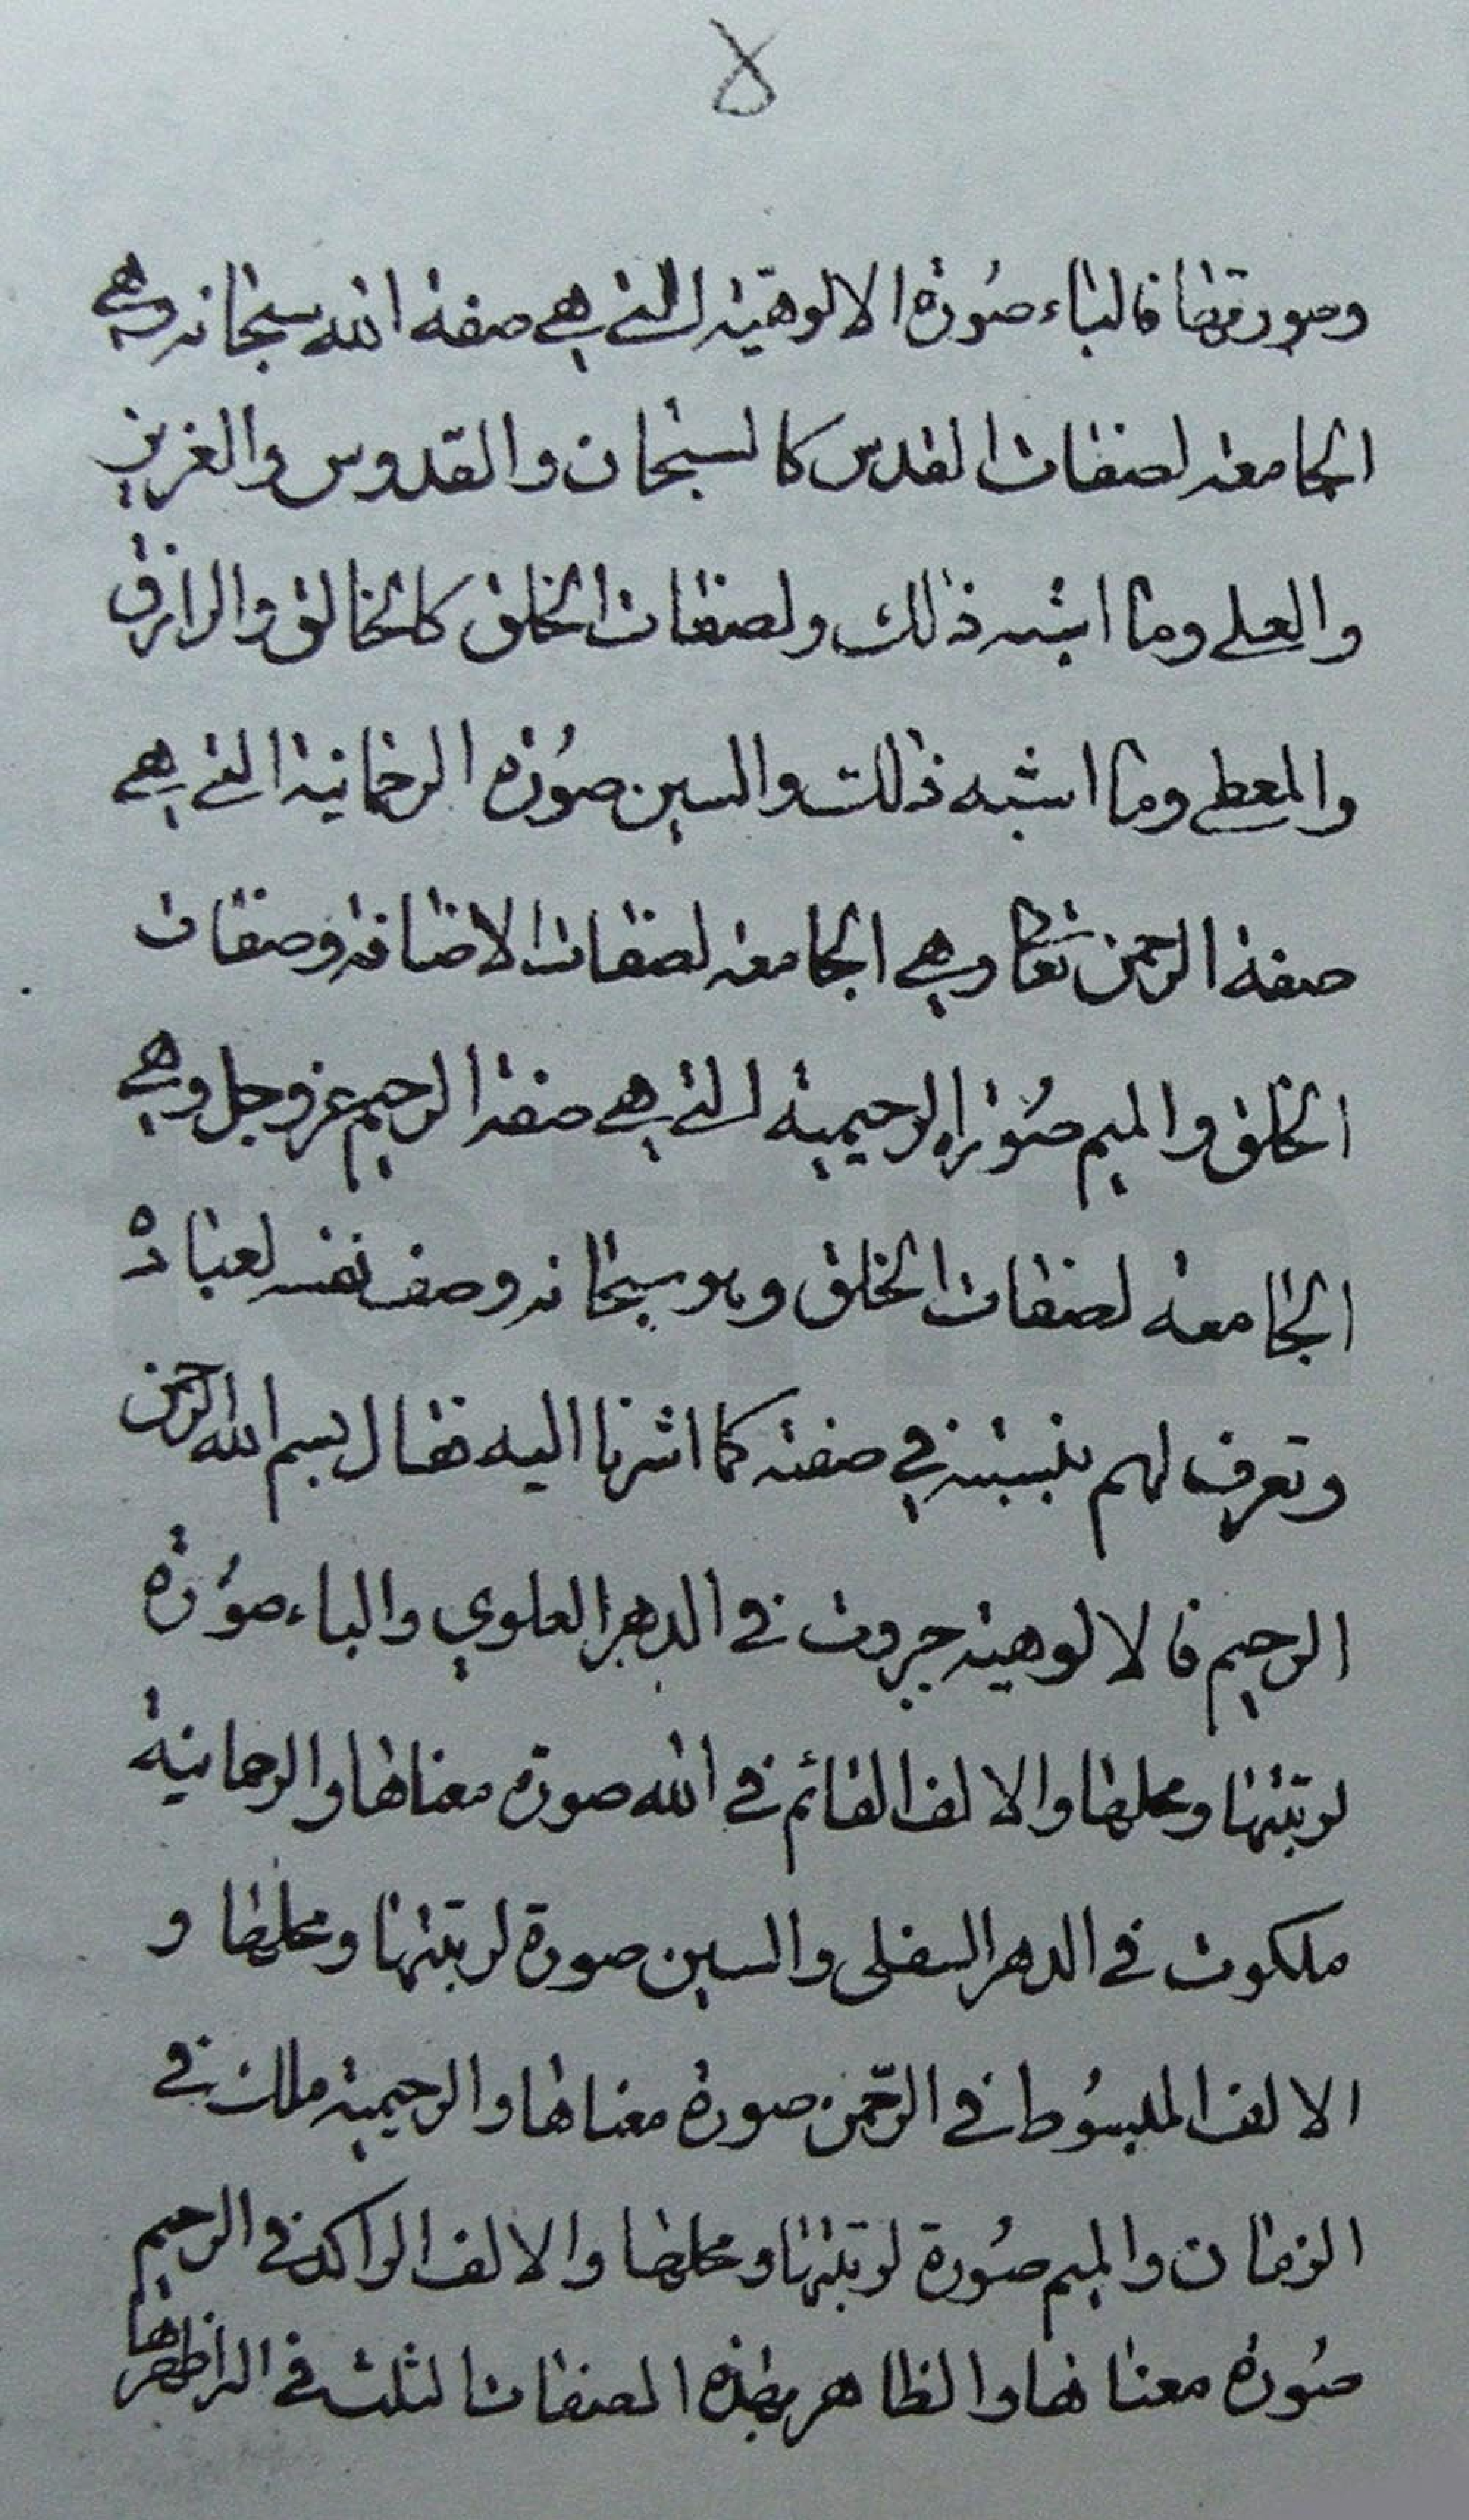 ۵
وصورتها فالباء صُورة الالوهيّة التي هي صفة الله سبحانه وهي
الجامعة لصفات القدس كالسبحان والقدوس والعزيز
والعلي وما اشبه ذلك ولصفات الخلق كالخالق والرازق
والمعطي وما اشبه ذلك والسين صُورة الرحمانية التي هي
صفة الرحمن تعالى وهي الجامعة لصفات الاضافة وصفات
الخلق والميم صُورة الرحيمية التي هي صفة الرحيم عز وجل وهي
الجامعة لصفات الخلق وهو سبحانه وصف نفسه لعباده
وتعرف لهم بنسبته في صفته كما اشرنا اليه فقال بسم الله الرحمن
الرحيم فالالوهية جبروت في الدهر العلوي والباء صُورة
لرتبتها ومحلها والالف القائم في الله صورة معناها والرحمانية
ملكوت في الدهر السفلى والسين صورة لرتبتها ومحلها و
الالف المبسُوط في الرّحمن صورة معناها والرحيمية ملك في
الزمان والميم صُورة لرتبتها ومحلها والالف الراكد في الرحيم
صُورة معناها والظاهر بهذه الصفات الثلث في